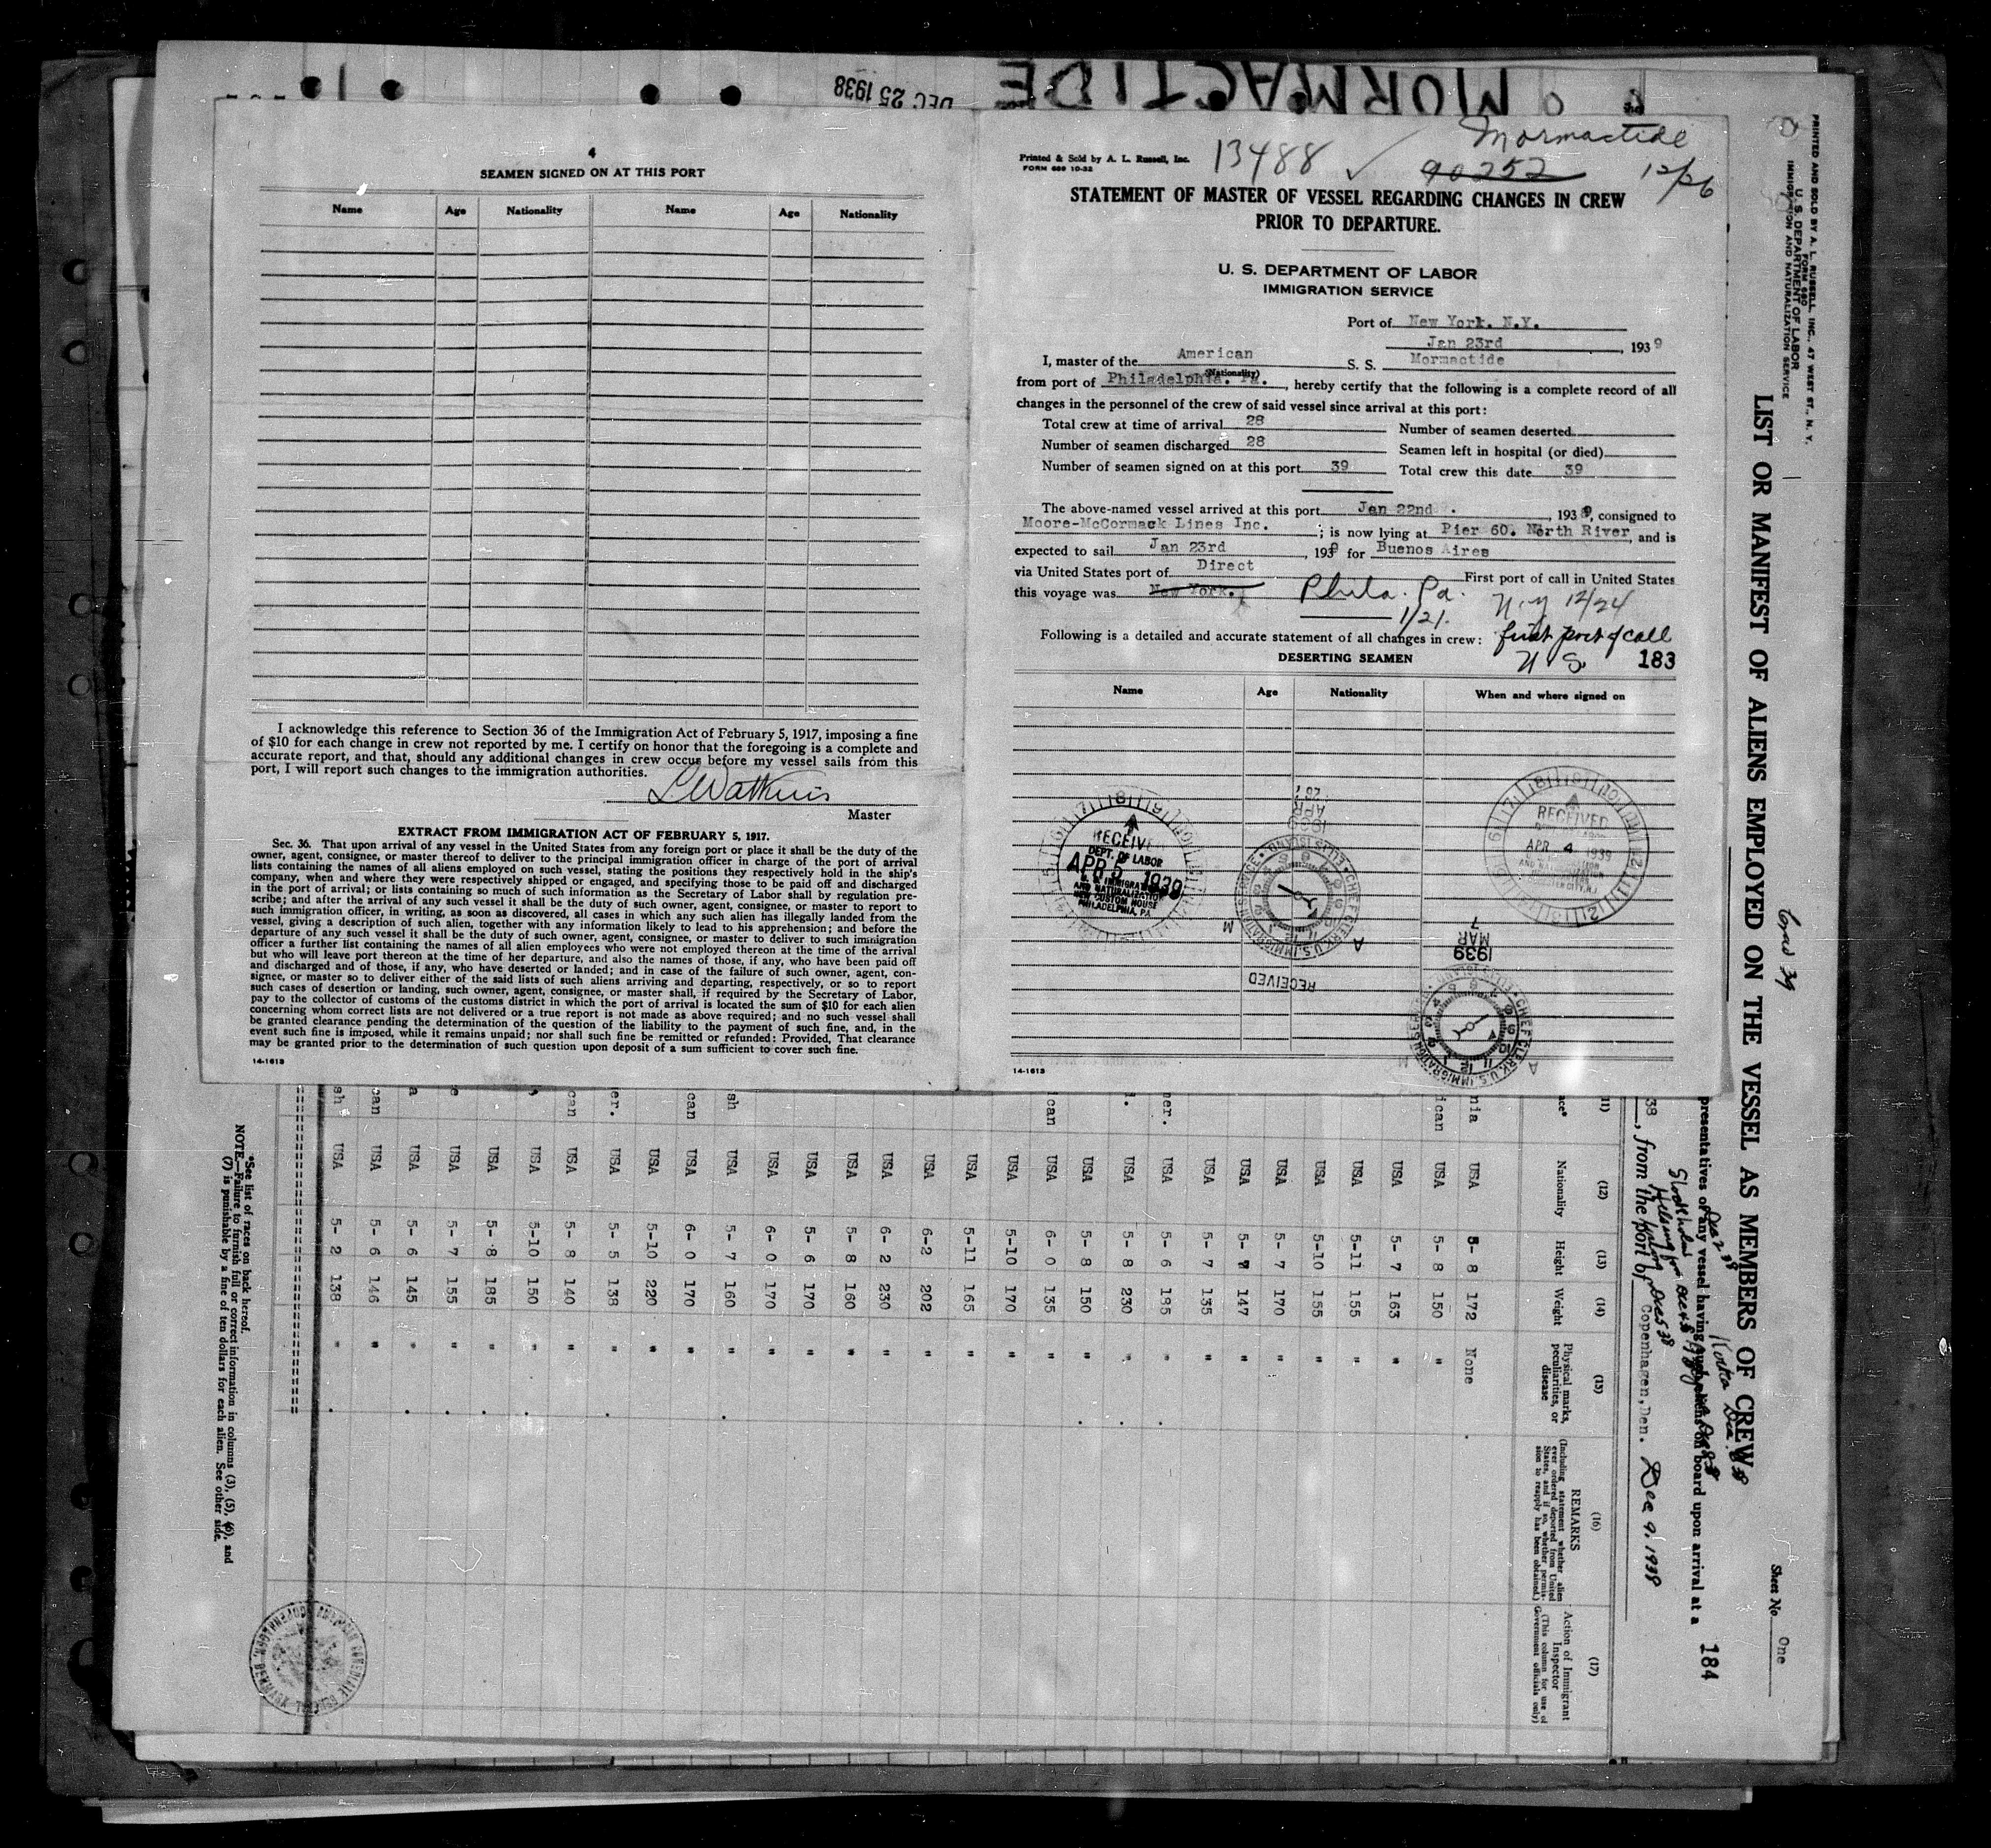 MORMACTIDE
DEC 25 1938
4
SEAMEN SIGNED ON AT THIS PORT
Name Age Nationality Name Age Nationality
I acknowledge this reference to Section 36 of the Immigration Act of February 5, 1917, imposing a fine
of $10 for each change in crew not reported by me. I certify on honor that the foregoing is a complete and
accurate report, and that, should any additional changes in crew occur before my vessel sails from this
port, I will report such changes to the immigration authorities.
L Watkins
Master
EXTRACT FROM IMMIGRATION ACT OF FEBRUARY 5, 1917.
Sec. 36. That upon arrival of any vessel in the United States from any foreign port or place it shall be the duty of the
owner, agent, consignee, or master thereof to deliver to the principal immigration officer in charge of the port of arrival
lists containing the names of all aliens employed on such vessel, stating the positions they respectively hold in the ship's
company, when and where they were respectively shipped or engaged, and specifying those to be paid off and discharged
in the port of arrival; or lists containing so much of such information as the Secretary of Labor shall by regulation pre-
scribe; and after the arrival of any such vessel it shall be the duty of such owner, agent, consignee, or master to report to
such immigration officer, in writing, as soon as discovered, all cases in which any such alien has illegally landed from the
vessel, giving a description of such alien, together with any information likely to lead to his apprehension; and before the
departure of any such vessel it shall be the duty of such owner, agent, consignee, or master to deliver to such immigration
officer a further list containing the names of all alien employees who were not employed thereon at the time of the arrival
but who will leave port thereon at the time of her departure, and also the names of those, if any, who have been paid off
and discharged and of those, if any, who have deserted or landed; and in case of the failure of such owner, agent, con-
signee, or master so to deliver either of the said lists of such aliens arriving and departing, respectively, or so to report
such cases of desertion or landing, such owner, agent, consignee, or master shall, if required by the Secretary of Labor,
pay to the collector of customs of the customs district in which the port of arrival is located the sum of $10 for each alien
concerning whom correct lists are not delivered or a true report is not made as above required; and no such vessel shall
be granted clearance pending the determination of the question of the liability to the payment of such fine, and, in the
event such fine is imposed, while it remains unpaid; nor shall such fine be remitted or refunded: Provided, That clearance
may be granted prior to the determination of such question upon deposit of a sum sufficient to cover such fine.
14-1613
Printed & Sold by A. L. Russell, Inc.
FORM 689 10-32
13488 ✓
Mormactide
90252 12/26
STATEMENT OF MASTER OF VESSEL REGARDING CHANGES IN CREW
PRIOR TO DEPARTURE.
U. S. DEPARTMENT OF LABOR
IMMIGRATION SERVICE
Port of New York. N.Y.
Jan 23rd, 1939
I, master of the American S. S. Mormactide
(Nationality)
from port of Philadelphia. Pa., hereby certify that the following is a complete record of all
changes in the personnel of the crew of said vessel since arrival at this port:
Total crew at time of arrival 28 Number of seamen deserted
Number of seamen discharged 28 Seamen left in hospital (or died)
Number of seamen signed on at this port 39 Total crew this date 39
The above-named vessel arrived at this port Jan 22nd, 1939, consigned to
Moore-McCormack Lines Inc.; is now lying at Pier 60. North River, and is
expected to sail Jan 23rd, 1939 for Buenos Aires
via United States port of Direct First port of call in United States
this voyage was New York. Phila. Pa. N.Y 12/24
1/21.
Following is a detailed and accurate statement of all changes in crew: first port of call
DESERTING SEAMEN U S. 183
Name Age Nationality When and where signed on
RECEIVED
DEPT. OF LABOR
APR 5 1939
U. S. IMMIGRATION
AND NATURALIZATION
NEW CUSTOM HOUSE
PHILADELPHIA, PA
1939
APR
CHIEF CLERK U.S. IMMIGRATION SERVICE ELLIS ISLAND
RECEIVED
RECEIVED
APR 4 1939
1939
MAR
7
CHIEF CLERK U.S. IMMIGRATION SERVICE
14-1613
PRINTED AND SOLD BY A. L. RUSSELL, INC., 47 WEST ST., N. Y.
FORM 680
U. S. DEPARTMENT OF LABOR
IMMIGRATION AND NATURALIZATION SERVICE
LIST OR MANIFEST OF ALIENS EMPLOYED ON THE VESSEL AS MEMBERS OF CREW
Sheet No. One
presentatives of any vessel having such aliens on board upon arrival at a
184
38, from the port of Copenhagen, Den. Dec 9, 1938
(11) (12) (13) (14) (15) (16) (17)
Nationality Height Weight Physical marks, peculiarities, or disease
REMARKS
(Including statement whether alien ever ordered deported from United States, and if so, whether permission to reapply has been obtained.)
Action of Immigrant Inspector
(This column for use of Government officials only)
nia USA 5- 8 172 None
ican USA 5- 8 150 "
USA 5- 7 163 "
USA 5-11 155 "
USA 5-10 155 "
USA 5- 7 170 "
USA 5- 7 147 "
USA 5- 7 135 "
er. USA 5- 6 185 "
USA 5- 8 230 "
USA 5- 8 150 "
can USA 6- 0 135 "
USA 5-10 170 "
USA 5-11 165 "
USA 6-2 202 "
USA 6- 2 230 "
USA 5- 8 160 "
USA 5- 6 170 "
USA 6- 0 170 "
sh USA 5- 7 160 "
can USA 6- 0 170 "
USA 5-10 220 "
er. USA 5- 5 138 "
can USA 5- 8 140 "
USA 5-10 150 "
USA 5- 8 185 "
e USA 5- 7 155 "
a USA 5- 6 145 "
can USA 5- 6 146 "
sh USA 5- 2 138 "
*See list of races on back hereof.
NOTE.—Failure to furnish full or correct information in columns (3), (5), (6), and
(7) is punishable by a fine of ten dollars for each alien. See other side.